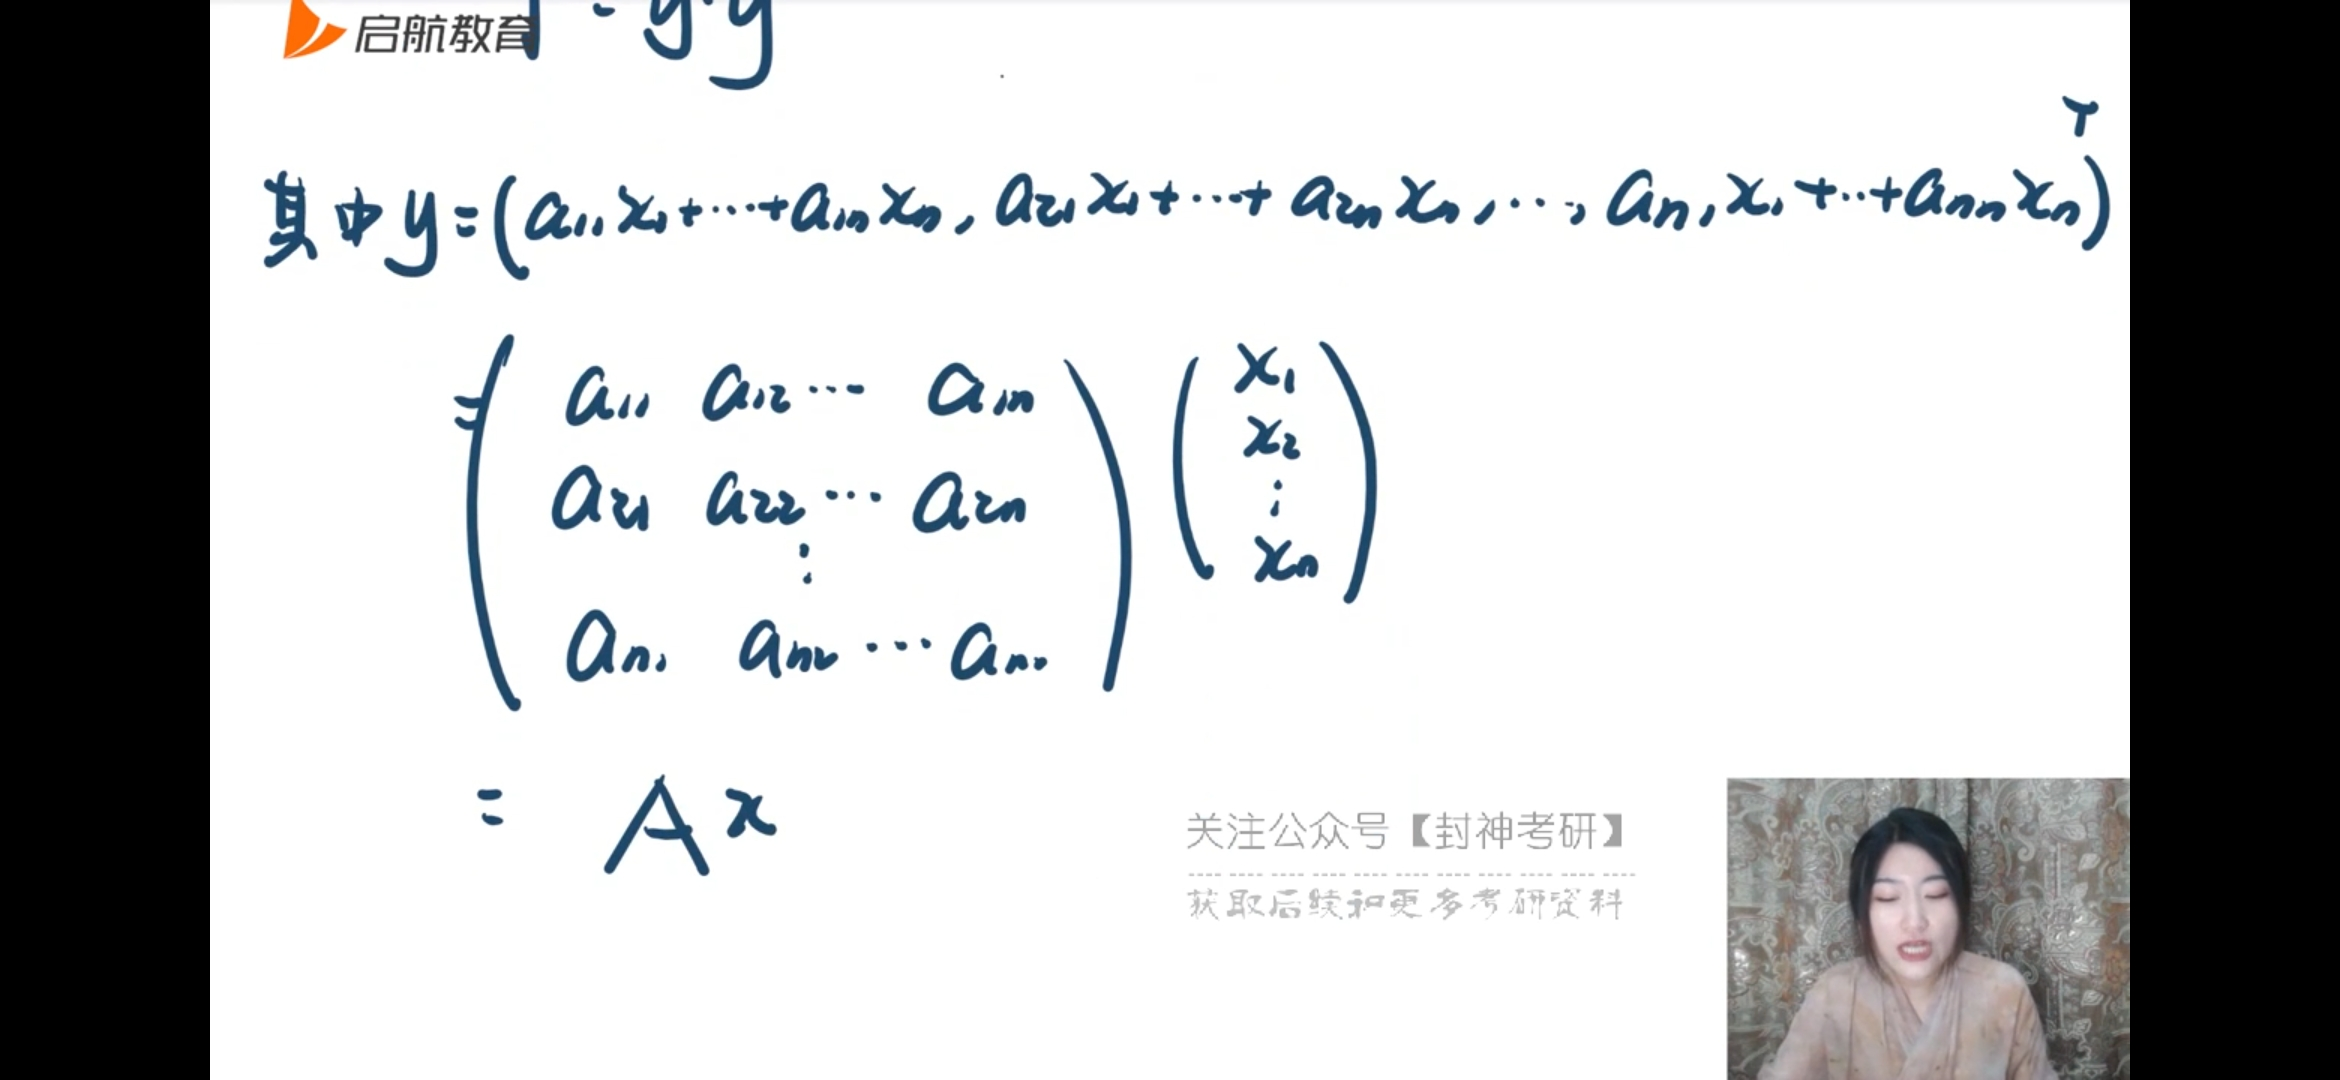 启航教育
= yᵀy
其中 y=(a₁₁x₁+…+a₁ₙxₙ, a₂₁x₁+…+a₂ₙxₙ, …, aₙ₁x₁+…+aₙₙxₙ)ᵀ
=( a₁₁ a₁₂ … a₁ₙ ) ( x₁ )
a₂₁ a₂₂ … a₂ₙ x₂
⋮ ⋮
aₙ₁ aₙ₂ … aₙₙ xₙ
= A x
关注公众号【封神考研】
获取后续和更多考研资料